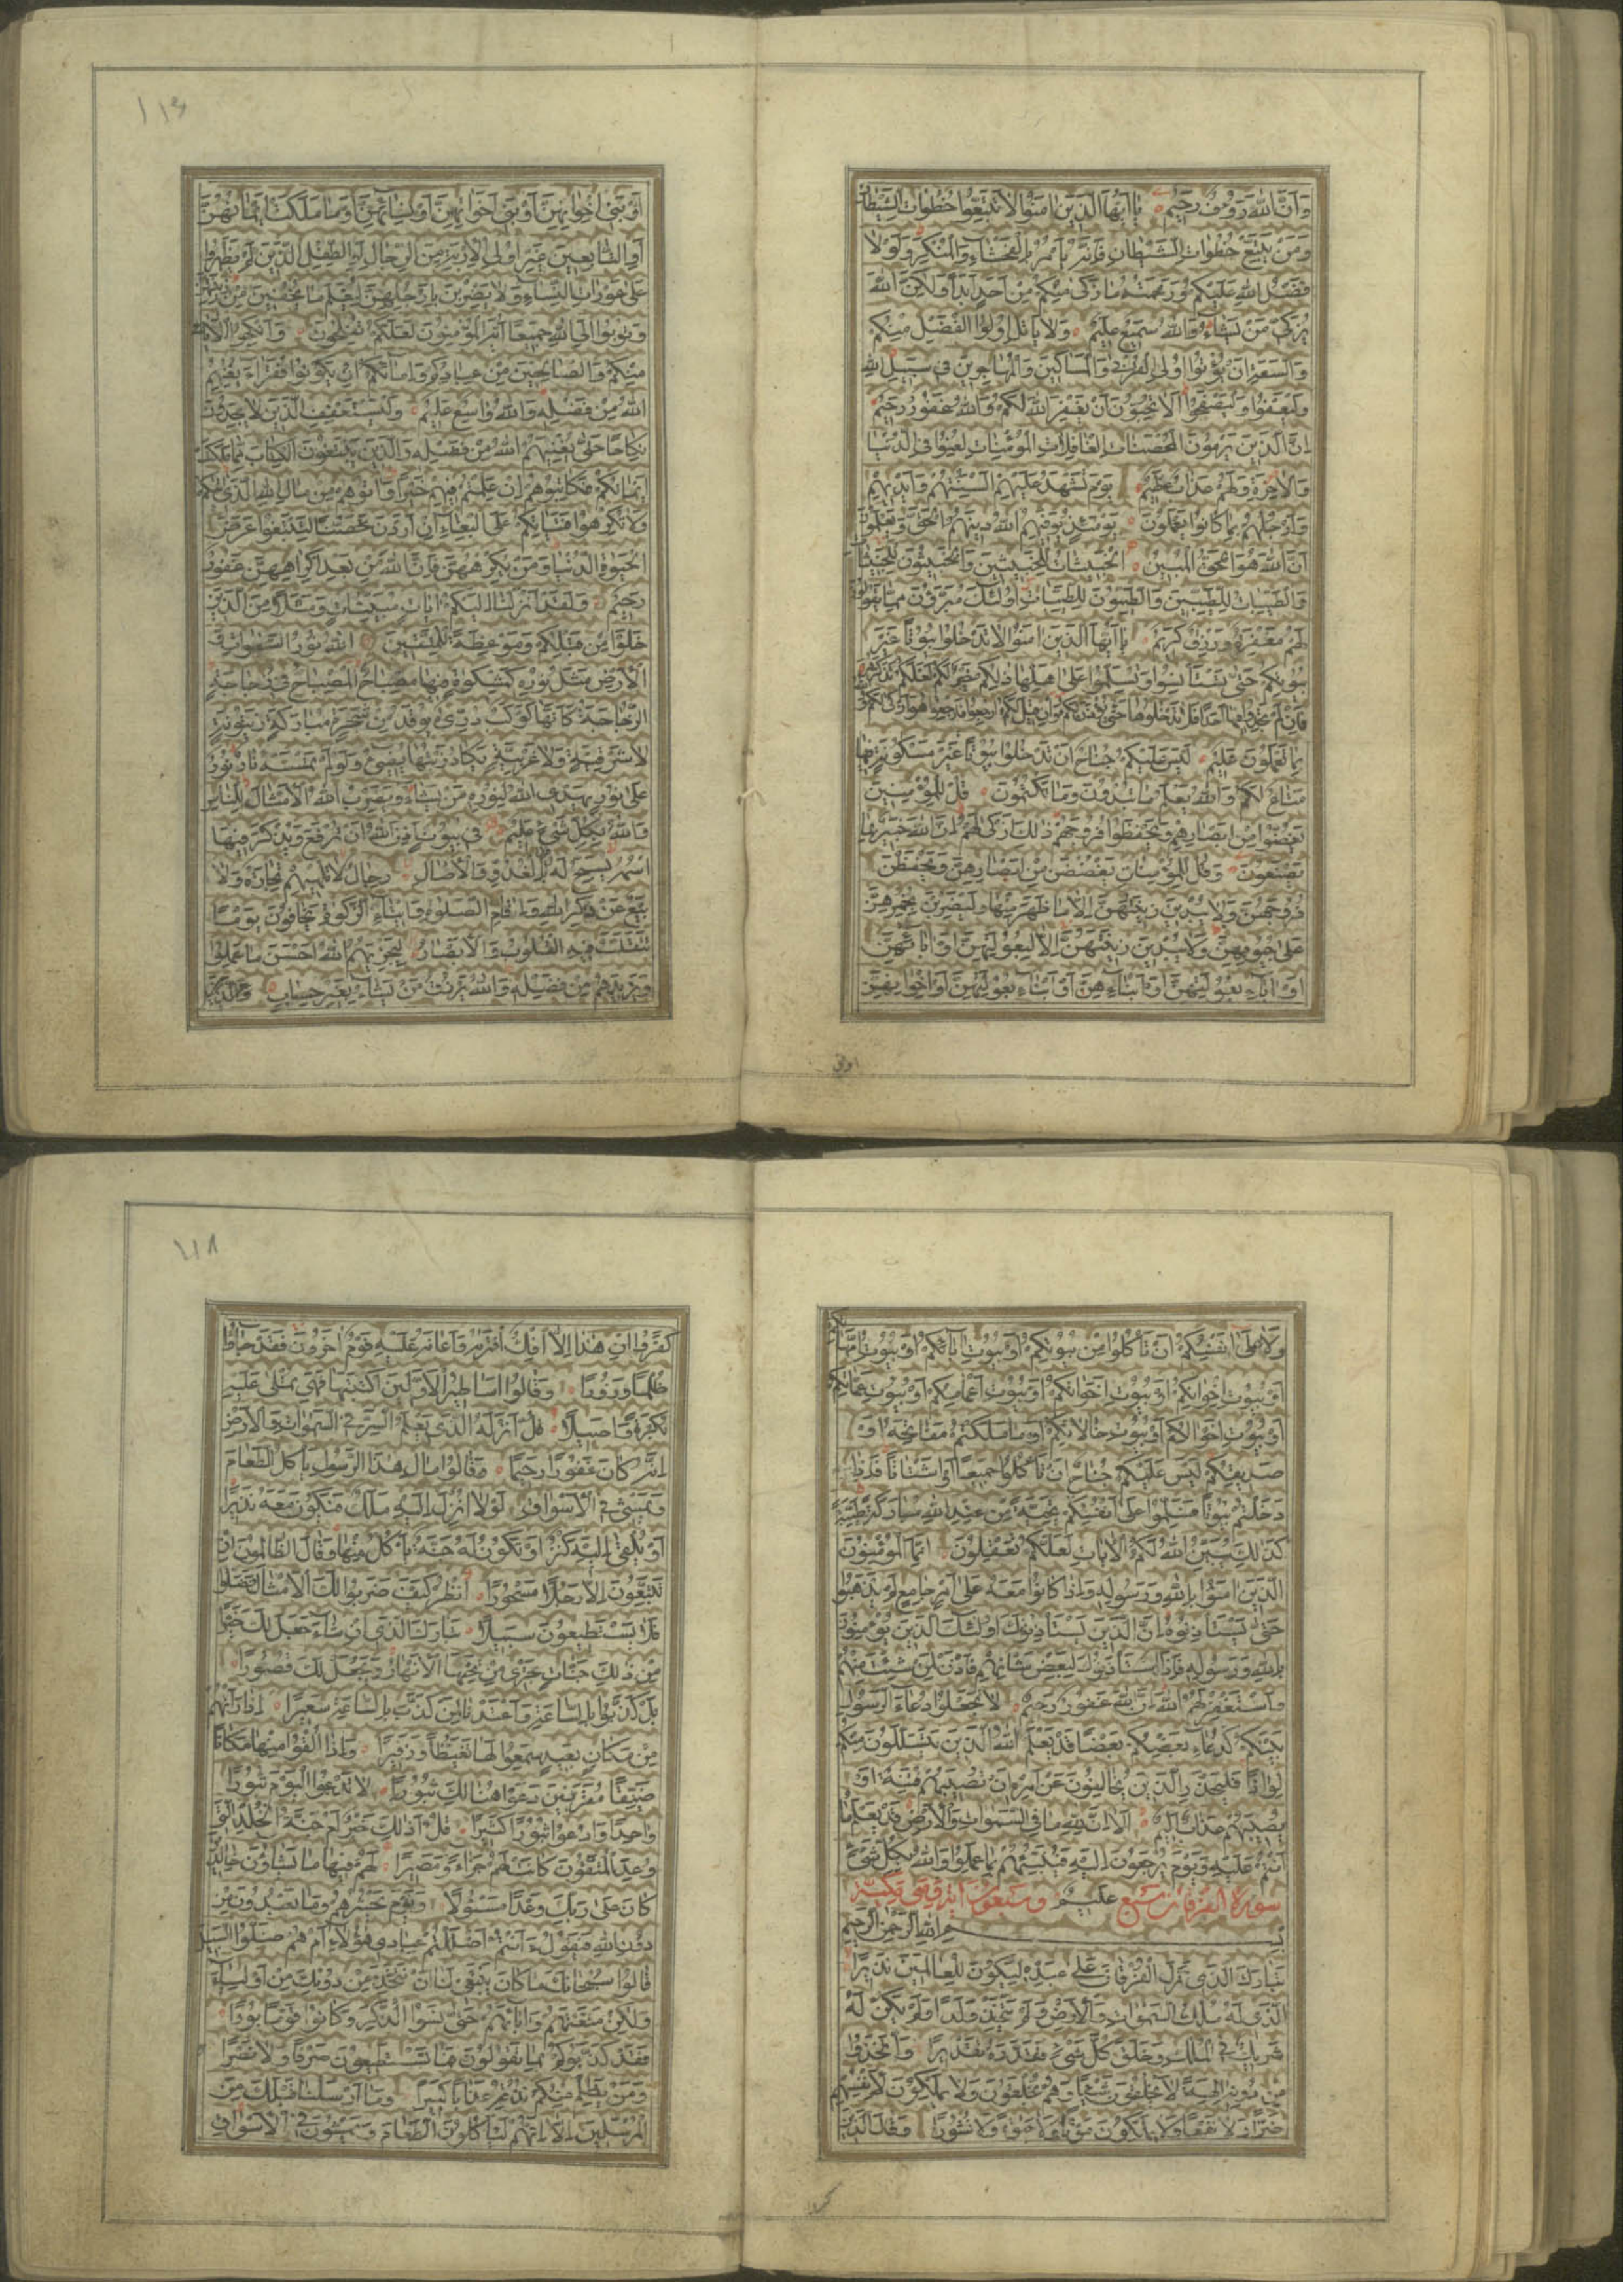 وَاَنَّ اللهَ رَؤُفٌ رَحِيمٌ يَا اَيُّهَا الَّذِينَ امَنُوا لَا تَتَّبِعُوا خُطُوَاتِ الشَّيْطَانِ
وَمَنْ يَتَّبِعْ خُطُوَاتِ الشَّيْطَانِ فَاِنَّهُ يَأْمُرُ بِالْفَحْشَاءِ وَالْمُنْكَرِ وَلَوْلَا
فَضْلُ اللهِ عَلَيْكُمْ وَرَحْمَتُهُ مَا زَكَى مِنْكُمْ مِنْ اَحَدٍ اَبَدًا وَلَكِنَّ اللهَ
يُزَكِّي مَنْ يَشَاءُ وَاللهُ سَمِيعٌ عَلِيمٌ وَلَا يَأْتَلِ اُولُوا الْفَضْلِ مِنْكُمْ
وَالسَّعَةِ اَنْ يُؤْتُوا اُولِي الْقُرْبَى وَالْمَسَاكِينَ وَالْمُهَاجِرِينَ فِي سَبِيلِ اللهِ
وَلْيَعْفُوا وَلْيَصْفَحُوا اَلَا تُحِبُّونَ اَنْ يَغْفِرَ اللهُ لَكُمْ وَاللهُ غَفُورٌ رَحِيمٌ
اِنَّ الَّذِينَ يَرْمُونَ الْمُحْصَنَاتِ الْغَافِلَاتِ الْمُؤْمِنَاتِ لُعِنُوا فِي الدُّنْيَا
وَالْاخِرَةِ وَلَهُمْ عَذَابٌ عَظِيمٌ يَوْمَ تَشْهَدُ عَلَيْهِمْ اَلْسِنَتُهُمْ وَاَيْدِيهِمْ
وَاَرْجُلُهُمْ بِمَا كَانُوا يَعْمَلُونَ يَوْمَئِذٍ يُوَفِّيهِمُ اللهُ دِينَهُمُ الْحَقَّ وَيَعْلَمُونَ
اَنَّ اللهَ هُوَ الْحَقُّ الْمُبِينُ اَلْخَبِيثَاتُ لِلْخَبِيثِينَ وَالْخَبِيثُونَ لِلْخَبِيثَاتِ
وَالطَّيِّبَاتُ لِلطَّيِّبِينَ وَالطَّيِّبُونَ لِلطَّيِّبَاتِ اُولَئِكَ مُبَرَّؤُنَ مِمَّا يَقُولُونَ
لَهُمْ مَغْفِرَةٌ وَرِزْقٌ كَرِيمٌ يَا اَيُّهَا الَّذِينَ امَنُوا لَا تَدْخُلُوا بُيُوتًا غَيْرَ
بُيُوتِكُمْ حَتَّى تَسْتَأْنِسُوا وَتُسَلِّمُوا عَلَى اَهْلِهَا ذَلِكُمْ خَيْرٌ لَكُمْ لَعَلَّكُمْ تَذَكَّرُونَ
فَاِنْ لَمْ تَجِدُوا فِيهَا اَحَدًا فَلَا تَدْخُلُوهَا حَتَّى يُؤْذَنَ لَكُمْ وَاِنْ قِيلَ لَكُمُ ارْجِعُوا فَارْجِعُوا هُوَ اَزْكَى لَكُمْ وَاللهُ
بِمَا تَعْمَلُونَ عَلِيمٌ لَيْسَ عَلَيْكُمْ جُنَاحٌ اَنْ تَدْخُلُوا بُيُوتًا غَيْرَ مَسْكُونَةٍ فِيهَا
مَتَاعٌ لَكُمْ وَاللهُ يَعْلَمُ مَا تُبْدُونَ وَمَا تَكْتُمُونَ قُلْ لِلْمُؤْمِنِينَ
يَغُضُّوا مِنْ اَبْصَارِهِمْ وَيَحْفَظُوا فُرُوجَهُمْ ذَلِكَ اَزْكَى لَهُمْ اِنَّ اللهَ خَبِيرٌ بِمَا
يَصْنَعُونَ وَقُلْ لِلْمُؤْمِنَاتِ يَغْضُضْنَ مِنْ اَبْصَارِهِنَّ وَيَحْفَظْنَ
فُرُوجَهُنَّ وَلَا يُبْدِينَ زِينَتَهُنَّ اِلَّا مَا ظَهَرَ مِنْهَا وَلْيَضْرِبْنَ بِخُمُرِهِنَّ
عَلَى جُيُوبِهِنَّ وَلَا يُبْدِينَ زِينَتَهُنَّ اِلَّا لِبُعُولَتِهِنَّ اَوْ ابَائِهِنَّ
اَوْ ابَاءِ بُعُولَتِهِنَّ اَوْ اَبْنَائِهِنَّ اَوْ اَبْنَاءِ بُعُولَتِهِنَّ اَوْ اِخْوَانِهِنَّ
اوبنی
١١٦
اَوْ بَنِي اِخْوَانِهِنَّ اَوْ بَنِي اَخَوَاتِهِنَّ اَوْ نِسَائِهِنَّ اَوْ مَا مَلَكَتْ اَيْمَانُهُنَّ
اَوِ التَّابِعِينَ غَيْرِ اُولِي الْاِرْبَةِ مِنَ الرِّجَالِ اَوِ الطِّفْلِ الَّذِينَ لَمْ يَظْهَرُوا
عَلَى عَوْرَاتِ النِّسَاءِ وَلَا يَضْرِبْنَ بِاَرْجُلِهِنَّ لِيُعْلَمَ مَا يُخْفِينَ مِنْ زِينَتِهِنَّ
وَتُوبُوا اِلَى اللهِ جَمِيعًا اَيُّهَ الْمُؤْمِنُونَ لَعَلَّكُمْ تُفْلِحُونَ وَاَنْكِحُوا الْاَيَامَى
مِنْكُمْ وَالصَّالِحِينَ مِنْ عِبَادِكُمْ وَاِمَائِكُمْ اِنْ يَكُونُوا فُقَرَاءَ يُغْنِهِمُ
اللهُ مِنْ فَضْلِهِ وَاللهُ وَاسِعٌ عَلِيمٌ وَلْيَسْتَعْفِفِ الَّذِينَ لَا يَجِدُونَ
نِكَاحًا حَتَّى يُغْنِيَهُمُ اللهُ مِنْ فَضْلِهِ وَالَّذِينَ يَبْتَغُونَ الْكِتَابَ مِمَّا مَلَكَتْ
اَيْمَانُكُمْ فَكَاتِبُوهُمْ اِنْ عَلِمْتُمْ فِيهِمْ خَيْرًا وَاتُوهُمْ مِنْ مَالِ اللهِ الَّذِي اتَاكُمْ
وَلَا تُكْرِهُوا فَتَيَاتِكُمْ عَلَى الْبِغَاءِ اِنْ اَرَدْنَ تَحَصُّنًا لِتَبْتَغُوا عَرَضَ
الْحَيوةِ الدُّنْيَا وَمَنْ يُكْرِهْهُنَّ فَاِنَّ اللهَ مِنْ بَعْدِ اِكْرَاهِهِنَّ غَفُورٌ
رَحِيمٌ وَلَقَدْ اَنْزَلْنَا اِلَيْكُمْ ايَاتٍ مُبَيِّنَاتٍ وَمَثَلًا مِنَ الَّذِينَ
خَلَوْا مِنْ قَبْلِكُمْ وَمَوْعِظَةً لِلْمُتَّقِينَ اَللهُ نُورُ السَّمَوَاتِ وَ
الْاَرْضِ مَثَلُ نُورِهِ كَمِشْكَوةٍ فِيهَا مِصْبَاحٌ الْمِصْبَاحُ فِي زُجَاجَةٍ
الزُّجَاجَةُ كَاَنَّهَا كَوْكَبٌ دُرِّيٌّ يُوقَدُ مِنْ شَجَرَةٍ مُبَارَكَةٍ زَيْتُونَةٍ
لَا شَرْقِيَّةٍ وَلَا غَرْبِيَّةٍ يَكَادُ زَيْتُهَا يُضِيءُ وَلَوْ لَمْ تَمْسَسْهُ نَارٌ نُورٌ
عَلَى نُورٍ يَهْدِي اللهُ لِنُورِهِ مَنْ يَشَاءُ وَيَضْرِبُ اللهُ الْاَمْثَالَ لِلنَّاسِ
وَاللهُ بِكُلِّ شَيْءٍ عَلِيمٌ فِي بُيُوتٍ اَذِنَ اللهُ اَنْ تُرْفَعَ وَيُذْكَرَ فِيهَا
اسْمُهُ يُسَبِّحُ لَهُ فِيهَا بِالْغُدُوِّ وَالْاصَالِ رِجَالٌ لَا تُلْهِيهِمْ تِجَارَةٌ وَلَا
بَيْعٌ عَنْ ذِكْرِ اللهِ وَاِقَامِ الصَّلَوةِ وَاِيتَاءِ الزَّكَوةِ يَخَافُونَ يَوْمًا
تَتَقَلَّبُ فِيهِ الْقُلُوبُ وَالْاَبْصَارُ لِيَجْزِيَهُمُ اللهُ اَحْسَنَ مَا عَمِلُوا
وَيَزِيدَهُمْ مِنْ فَضْلِهِ وَاللهُ يَرْزُقُ مَنْ يَشَاءُ بِغَيْرِ حِسَابٍ وَالَّذِينَ
وَلَا عَلَى اَنْفُسِكُمْ اَنْ تَأْكُلُوا مِنْ بُيُوتِكُمْ اَوْ بُيُوتِ ابَائِكُمْ اَوْ بُيُوتِ اُمَّهَاتِكُمْ
اَوْ بُيُوتِ اِخْوَانِكُمْ اَوْ بُيُوتِ اَخَوَاتِكُمْ اَوْ بُيُوتِ اَعْمَامِكُمْ اَوْ بُيُوتِ عَمَّاتِكُمْ
اَوْ بُيُوتِ اَخْوَالِكُمْ اَوْ بُيُوتِ خَالَاتِكُمْ اَوْ مَا مَلَكْتُمْ مَفَاتِحَهُ اَوْ
صَدِيقِكُمْ لَيْسَ عَلَيْكُمْ جُنَاحٌ اَنْ تَأْكُلُوا جَمِيعًا اَوْ اَشْتَاتًا فَاِذَا
دَخَلْتُمْ بُيُوتًا فَسَلِّمُوا عَلَى اَنْفُسِكُمْ تَحِيَّةً مِنْ عِنْدِ اللهِ مُبَارَكَةً طَيِّبَةً
كَذَلِكَ يُبَيِّنُ اللهُ لَكُمُ الْايَاتِ لَعَلَّكُمْ تَعْقِلُونَ اِنَّمَا الْمُؤْمِنُونَ
الَّذِينَ امَنُوا بِاللهِ وَرَسُولِهِ وَاِذَا كَانُوا مَعَهُ عَلَى اَمْرٍ جَامِعٍ لَمْ يَذْهَبُوا
حَتَّى يَسْتَأْذِنُوهُ اِنَّ الَّذِينَ يَسْتَأْذِنُونَكَ اُولَئِكَ الَّذِينَ يُؤْمِنُونَ
بِاللهِ وَرَسُولِهِ فَاِذَا اسْتَأْذَنُوكَ لِبَعْضِ شَأْنِهِمْ فَأْذَنْ لِمَنْ شِئْتَ مِنْهُمْ
وَاسْتَغْفِرْ لَهُمُ اللهَ اِنَّ اللهَ غَفُورٌ رَحِيمٌ لَا تَجْعَلُوا دُعَاءَ الرَّسُولِ
بَيْنَكُمْ كَدُعَاءِ بَعْضِكُمْ بَعْضًا قَدْ يَعْلَمُ اللهُ الَّذِينَ يَتَسَلَّلُونَ مِنْكُمْ
لِوَاذًا فَلْيَحْذَرِ الَّذِينَ يُخَالِفُونَ عَنْ اَمْرِهِ اَنْ تُصِيبَهُمْ فِتْنَةٌ اَوْ
يُصِيبَهُمْ عَذَابٌ اَلِيمٌ اَلَا اِنَّ لِلهِ مَا فِي السَّمَوَاتِ وَالْاَرْضِ قَدْ يَعْلَمُ مَا
اَنْتُمْ عَلَيْهِ وَيَوْمَ يُرْجَعُونَ اِلَيْهِ فَيُنَبِّئُهُمْ بِمَا عَمِلُوا وَاللهُ بِكُلِّ شَيْءٍ
سورة الفرقان سبع عَلِيمٌ وسبعون آية وهي مكية
بسم الله الرحمن الرحيم
تَبَارَكَ الَّذِي نَزَّلَ الْفُرْقَانَ عَلَى عَبْدِهِ لِيَكُونَ لِلْعَالَمِينَ نَذِيرًا
الَّذِي لَهُ مُلْكُ السَّمَوَاتِ وَالْاَرْضِ وَلَمْ يَتَّخِذْ وَلَدًا وَلَمْ يَكُنْ لَهُ
شَرِيكٌ فِي الْمُلْكِ وَخَلَقَ كُلَّ شَيْءٍ فَقَدَّرَهُ تَقْدِيرًا وَاتَّخَذُوا
مِنْ دُونِهِ الِهَةً لَا يَخْلُقُونَ شَيْئًا وَهُمْ يُخْلَقُونَ وَلَا يَمْلِكُونَ لِاَنْفُسِهِمْ
ضَرًّا وَلَا نَفْعًا وَلَا يَمْلِكُونَ مَوْتًا وَلَا حَيوةً وَلَا نُشُورًا وَقَالَ الَّذِينَ
كفروا
١١٨
كَفَرُوا اِنْ هَذَا اِلَّا اِفْكٌ افْتَرَيهُ وَاَعَانَهُ عَلَيْهِ قَوْمٌ اخَرُونَ فَقَدْ جَاؤُ
ظُلْمًا وَزُورًا وَقَالُوا اَسَاطِيرُ الْاَوَّلِينَ اكْتَتَبَهَا فَهِيَ تُمْلَى عَلَيْهِ
بُكْرَةً وَاَصِيلًا قُلْ اَنْزَلَهُ الَّذِي يَعْلَمُ السِّرَّ فِي السَّمَوَاتِ وَالْاَرْضِ
اِنَّهُ كَانَ غَفُورًا رَحِيمًا وَقَالُوا مَالِ هَذَا الرَّسُولِ يَأْكُلُ الطَّعَامَ
وَيَمْشِي فِي الْاَسْوَاقِ لَوْلَا اُنْزِلَ اِلَيْهِ مَلَكٌ فَيَكُونَ مَعَهُ نَذِيرًا
اَوْ يُلْقَى اِلَيْهِ كَنْزٌ اَوْ تَكُونُ لَهُ جَنَّةٌ يَأْكُلُ مِنْهَا وَقَالَ الظَّالِمُونَ اِنْ
تَتَّبِعُونَ اِلَّا رَجُلًا مَسْحُورًا اُنْظُرْ كَيْفَ ضَرَبُوا لَكَ الْاَمْثَالَ فَضَلُّوا
فَلَا يَسْتَطِيعُونَ سَبِيلًا تَبَارَكَ الَّذِي اِنْ شَاءَ جَعَلَ لَكَ خَيْرًا
مِنْ ذَلِكَ جَنَّاتٍ تَجْرِي مِنْ تَحْتِهَا الْاَنْهَارُ وَيَجْعَلْ لَكَ قُصُورًا
بَلْ كَذَّبُوا بِالسَّاعَةِ وَاَعْتَدْنَا لِمَنْ كَذَّبَ بِالسَّاعَةِ سَعِيرًا اِذَا رَاَتْهُمْ
مِنْ مَكَانٍ بَعِيدٍ سَمِعُوا لَهَا تَغَيُّظًا وَزَفِيرًا وَاِذَا اُلْقُوا مِنْهَا مَكَانًا
ضَيِّقًا مُقَرَّنِينَ دَعَوْا هُنَالِكَ ثُبُورًا لَا تَدْعُوا الْيَوْمَ ثُبُورًا
وَاحِدًا وَادْعُوا ثُبُورًا كَثِيرًا قُلْ اَذَلِكَ خَيْرٌ اَمْ جَنَّةُ الْخُلْدِ الَّتِي
وُعِدَ الْمُتَّقُونَ كَانَتْ لَهُمْ جَزَاءً وَمَصِيرًا لَهُمْ فِيهَا مَا يَشَاؤُنَ خَالِدِينَ
كَانَ عَلَى رَبِّكَ وَعْدًا مَسْئُولًا وَيَوْمَ يَحْشُرُهُمْ وَمَا يَعْبُدُونَ مِنْ
دُونِ اللهِ فَيَقُولُ ءَاَنْتُمْ اَضْلَلْتُمْ عِبَادِي هَؤُلَاءِ اَمْ هُمْ ضَلُّوا السَّبِيلَ
قَالُوا سُبْحَانَكَ مَا كَانَ يَنْبَغِي لَنَا اَنْ نَتَّخِذَ مِنْ دُونِكَ مِنْ اَوْلِيَاءَ
وَلَكِنْ مَتَّعْتَهُمْ وَابَاءَهُمْ حَتَّى نَسُوا الذِّكْرَ وَكَانُوا قَوْمًا بُورًا
فَقَدْ كَذَّبُوكُمْ بِمَا تَقُولُونَ فَمَا تَسْتَطِيعُونَ صَرْفًا وَلَا نَصْرًا
وَمَنْ يَظْلِمْ مِنْكُمْ نُذِقْهُ عَذَابًا كَبِيرًا وَمَا اَرْسَلْنَا قَبْلَكَ مِنَ
الْمُرْسَلِينَ اِلَّا اِنَّهُمْ لَيَأْكُلُونَ الطَّعَامَ وَيَمْشُونَ فِي الْاَسْوَاقِ